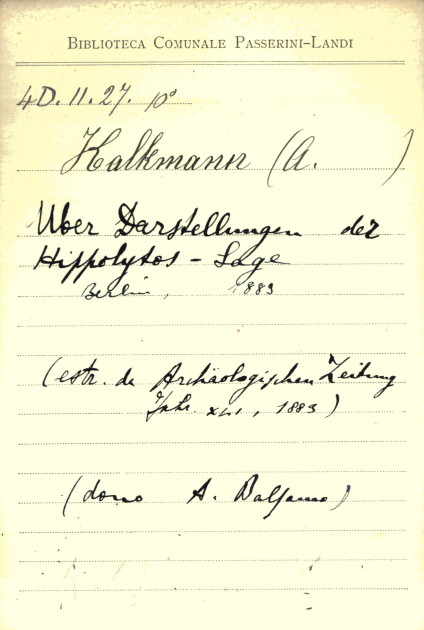 BIBLIOTECA COMUNALE PASSERINI-LANDI
4D.11.27. 10°
Halkmann (A. )
Uber Darstellungen der
Hippolytos - Sage
Berlin, 1883
(estr. da Archäologischen Zeitung
Jahr. XLI, 1883)
(dono A. Balsamo)